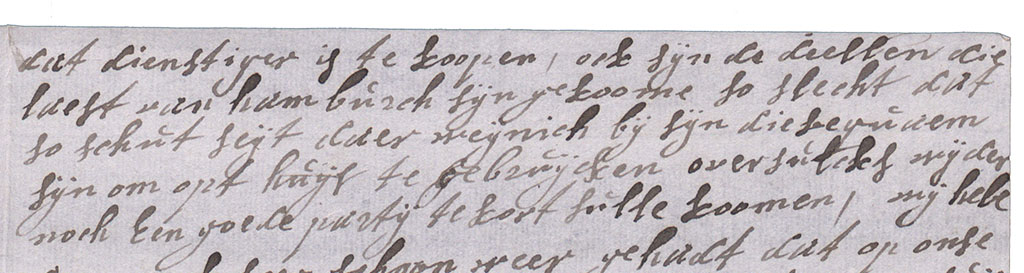 dat dienstiger is te koopen, ock sÿn de deellen die
laest van hamburch sÿn gekoome so slecht dat
so schut seÿt daer weÿnich bÿ sÿn die bequaem
sÿn om opt huÿs te gebruÿcken oversulckes wÿder
noch een goede partÿ te kort sulle koomen, wÿ hebe
schoon weer gehadt dat op onse